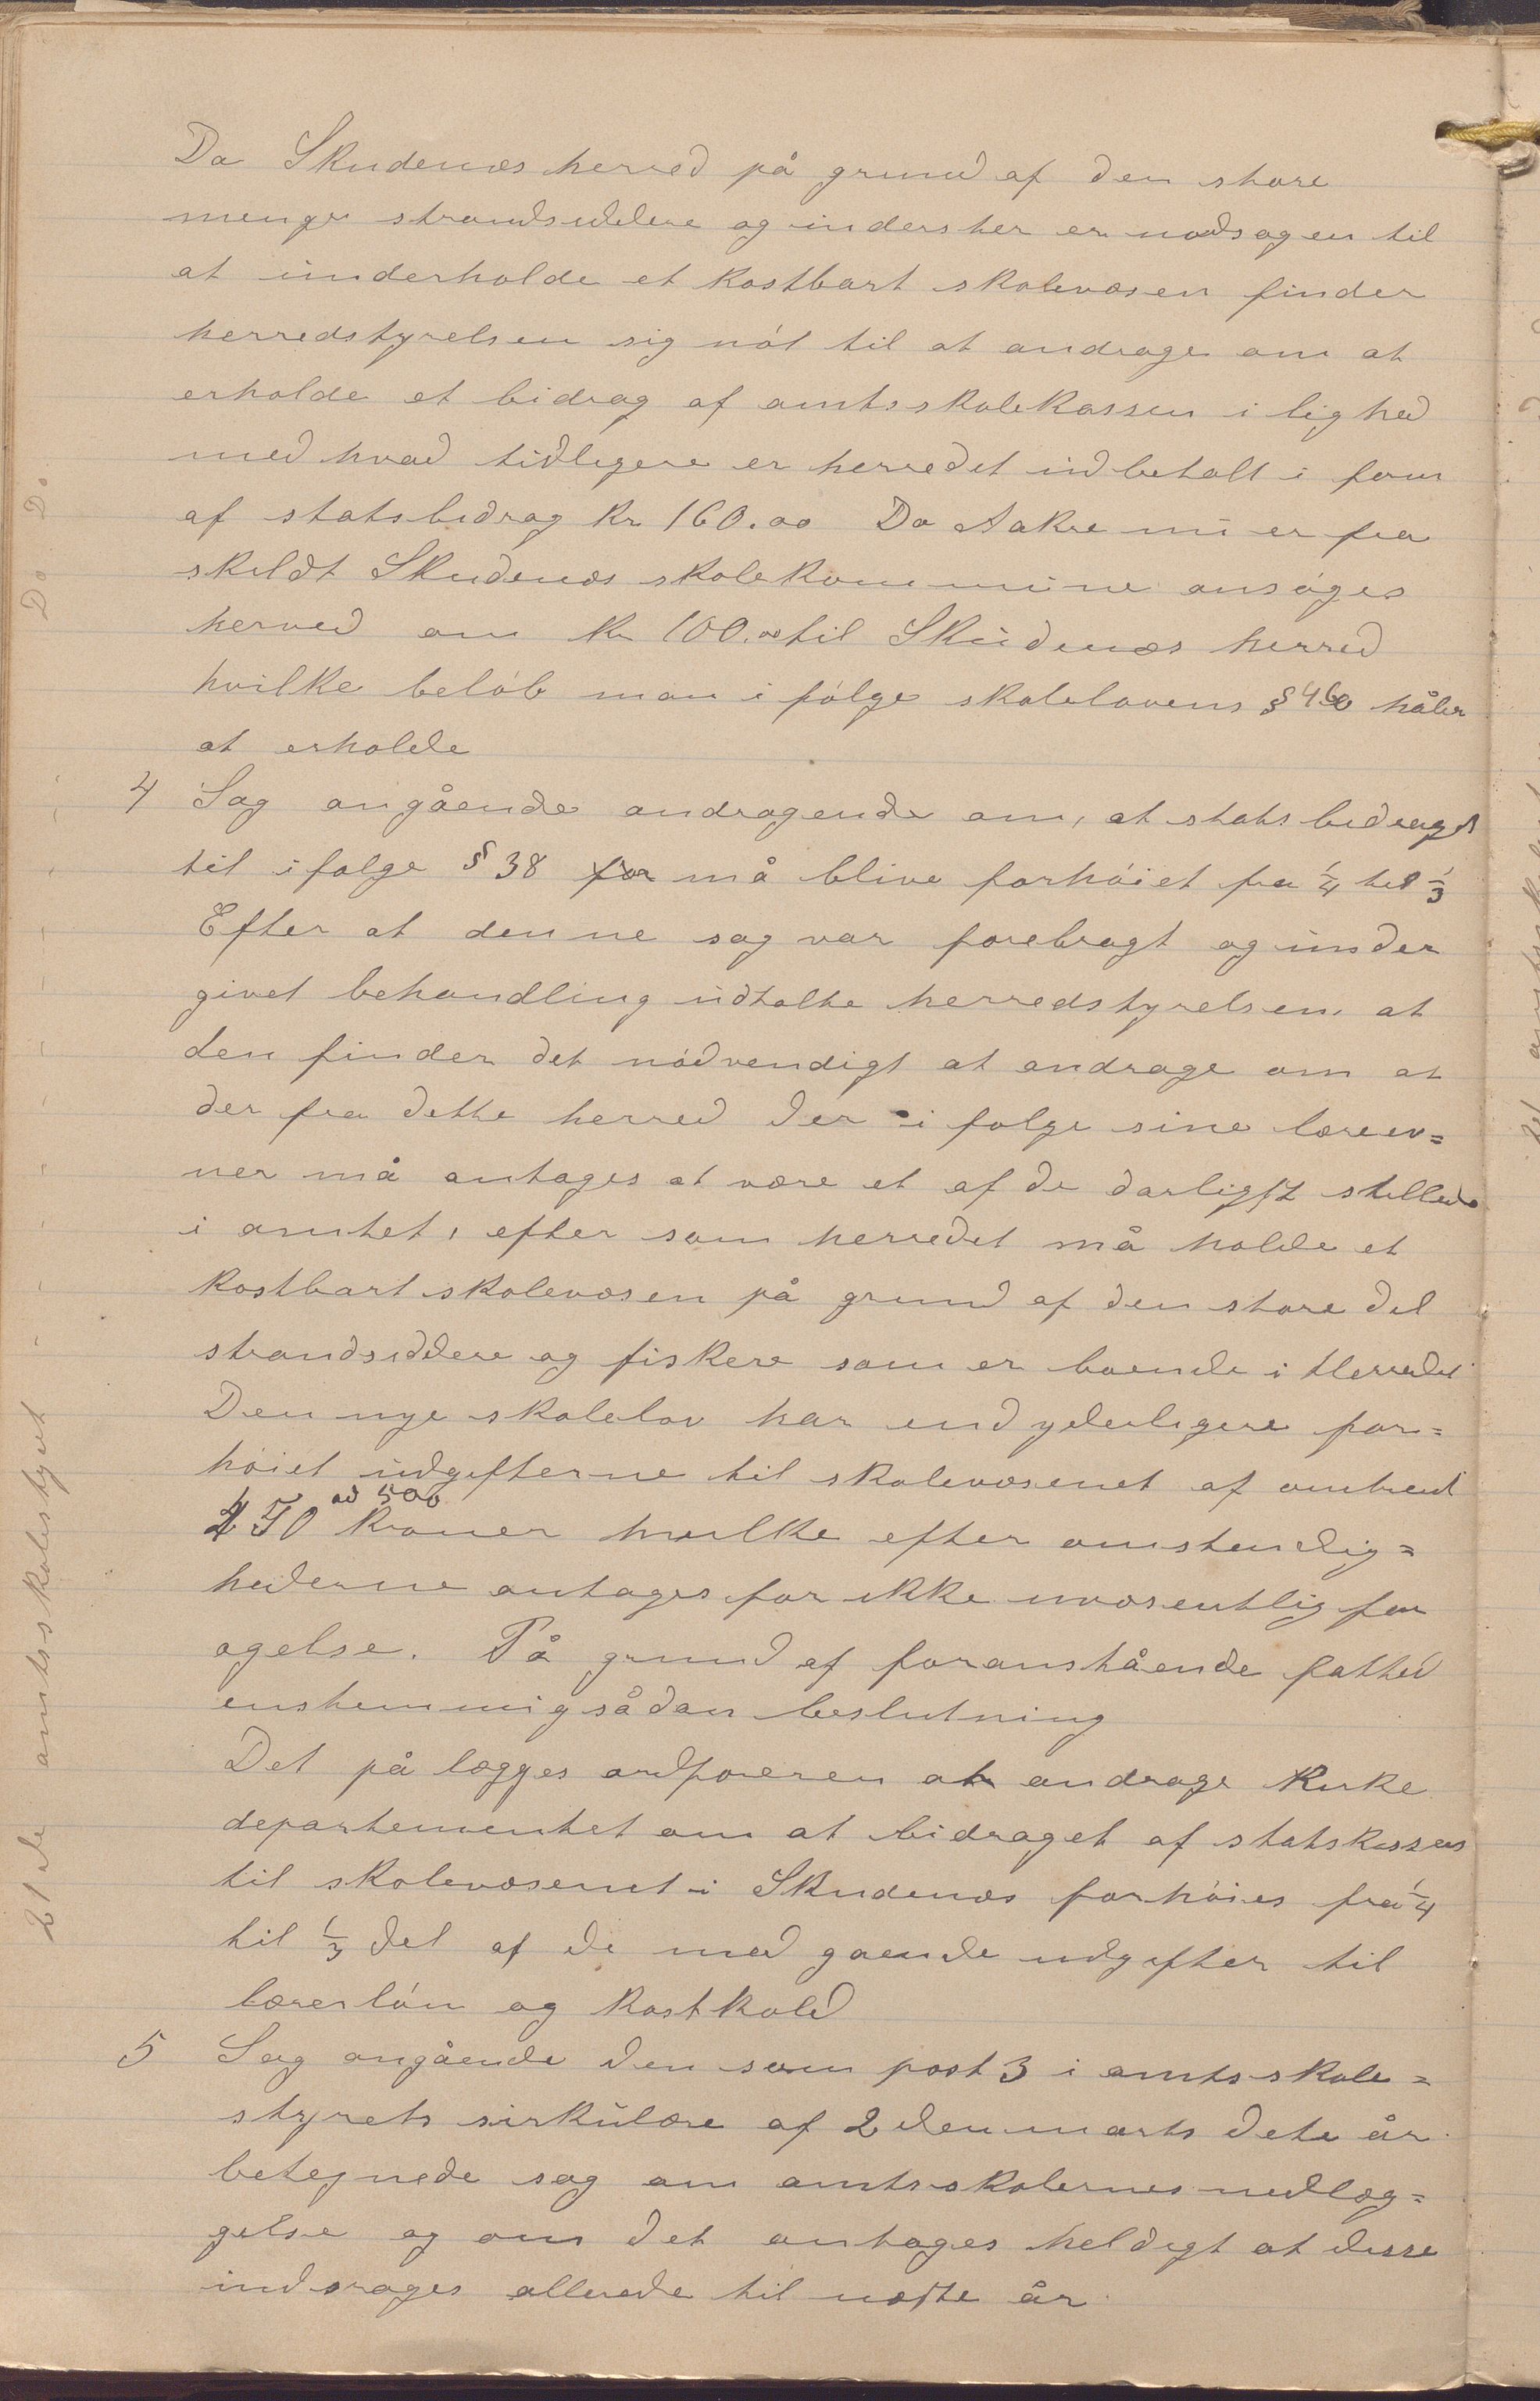 Da Skudenæs herred på grund af den store
menge strandsiddere og inderster er nødsagen til
at underholde et kostbart skolevæsen finder
herredstyrelsen sig nöt til at andrage om at
erholde et bidrag af amtsskolekassen i lighed
med hvad tidligere er herredet indbetalt i form
af statsbidrag Kr 160.00 Da Aakre nu er fra
skildt Skudenæs skolekommune ansøges
herved om Kr 100.00 til Skudenæs herred
hvilke beløb man i følge skolelovens § 460 håber
at erholde
4 Sag angående andragende om, at statsbidraget
til i følge § 38 for må blive forhöiet fra 1/4 til 1/3
Efter at denne sag var forebragt og under
givet behandling udtalte herredstyrelsen, at
den finder det nödvendigt at andrage om at
der fra dette herred der i følge sine læreev=
ner må antages at være et af de darligst stillede
i amtet, efter som herredet må holde et
kostbart skolevæsen på grund af den store del
strandsiddere og fiskere som er boende i Herredet
Den nye skolelov har end yderligere for=
höiet udgifterne til skolevæsenet af omtrent
450 ad 500 kroner hvilke efter omstendig=
hederne antages for ikke uvæsentlig for
øgelse. På grund af foranstående fatted
enstemmig sådan beslutning
Det på lægges ordføreren at andrage Kirke
departementet om at bidraget af statskassen
til skolevæsenet i Skudenæs forhöies fra 1/4
til 1/3 del af de med gaende udgifter til
lærerlön og kosthold
5 Sag angående den som post 3 i amtsskole=
styrets sirkulære af 2den marts dete år
betegnede sag om amtsskolernes nedlæg=
gelse og om det antages heldigt at disse
inddrages allerede til næste år.
21de amtsskolestyret - - - - - - - Do Do